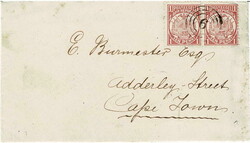 E. Burmester Esq
Adderley-Street
Cape Town.